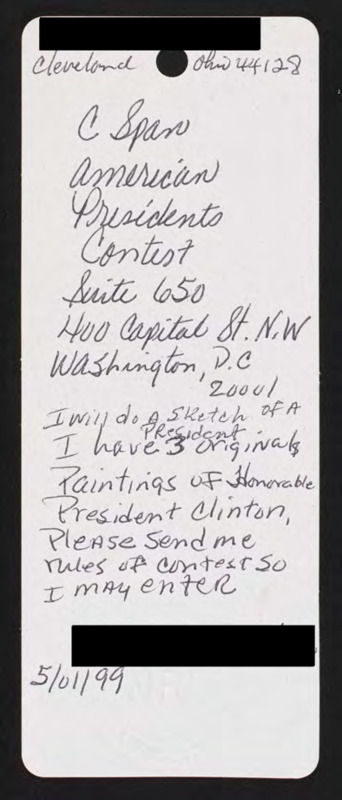 Cleveland Ohio 44128
C Span
American
Presidents
Contest
Suite 650
400 Capital St. N.W
Washington, D.C
20001
I will do A Sketch of A
President
I have 3 originals
Paintings of Honorable
President Clinton,
Please Send me
rules of contest so
I may enter
5/01/99